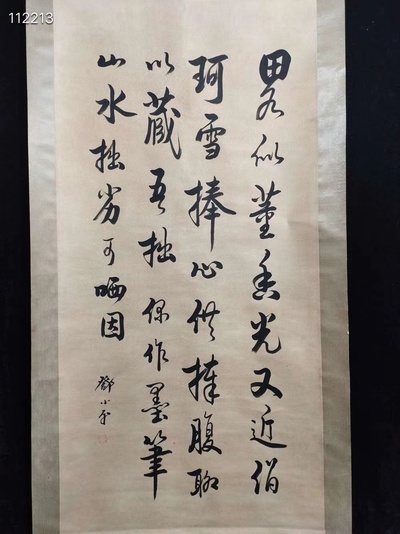 112213
畧似董香光又近
珂雪捧心供捧腹聊
以藏吾拙偶作墨筆
山水拙劣可哂因
鄧小平